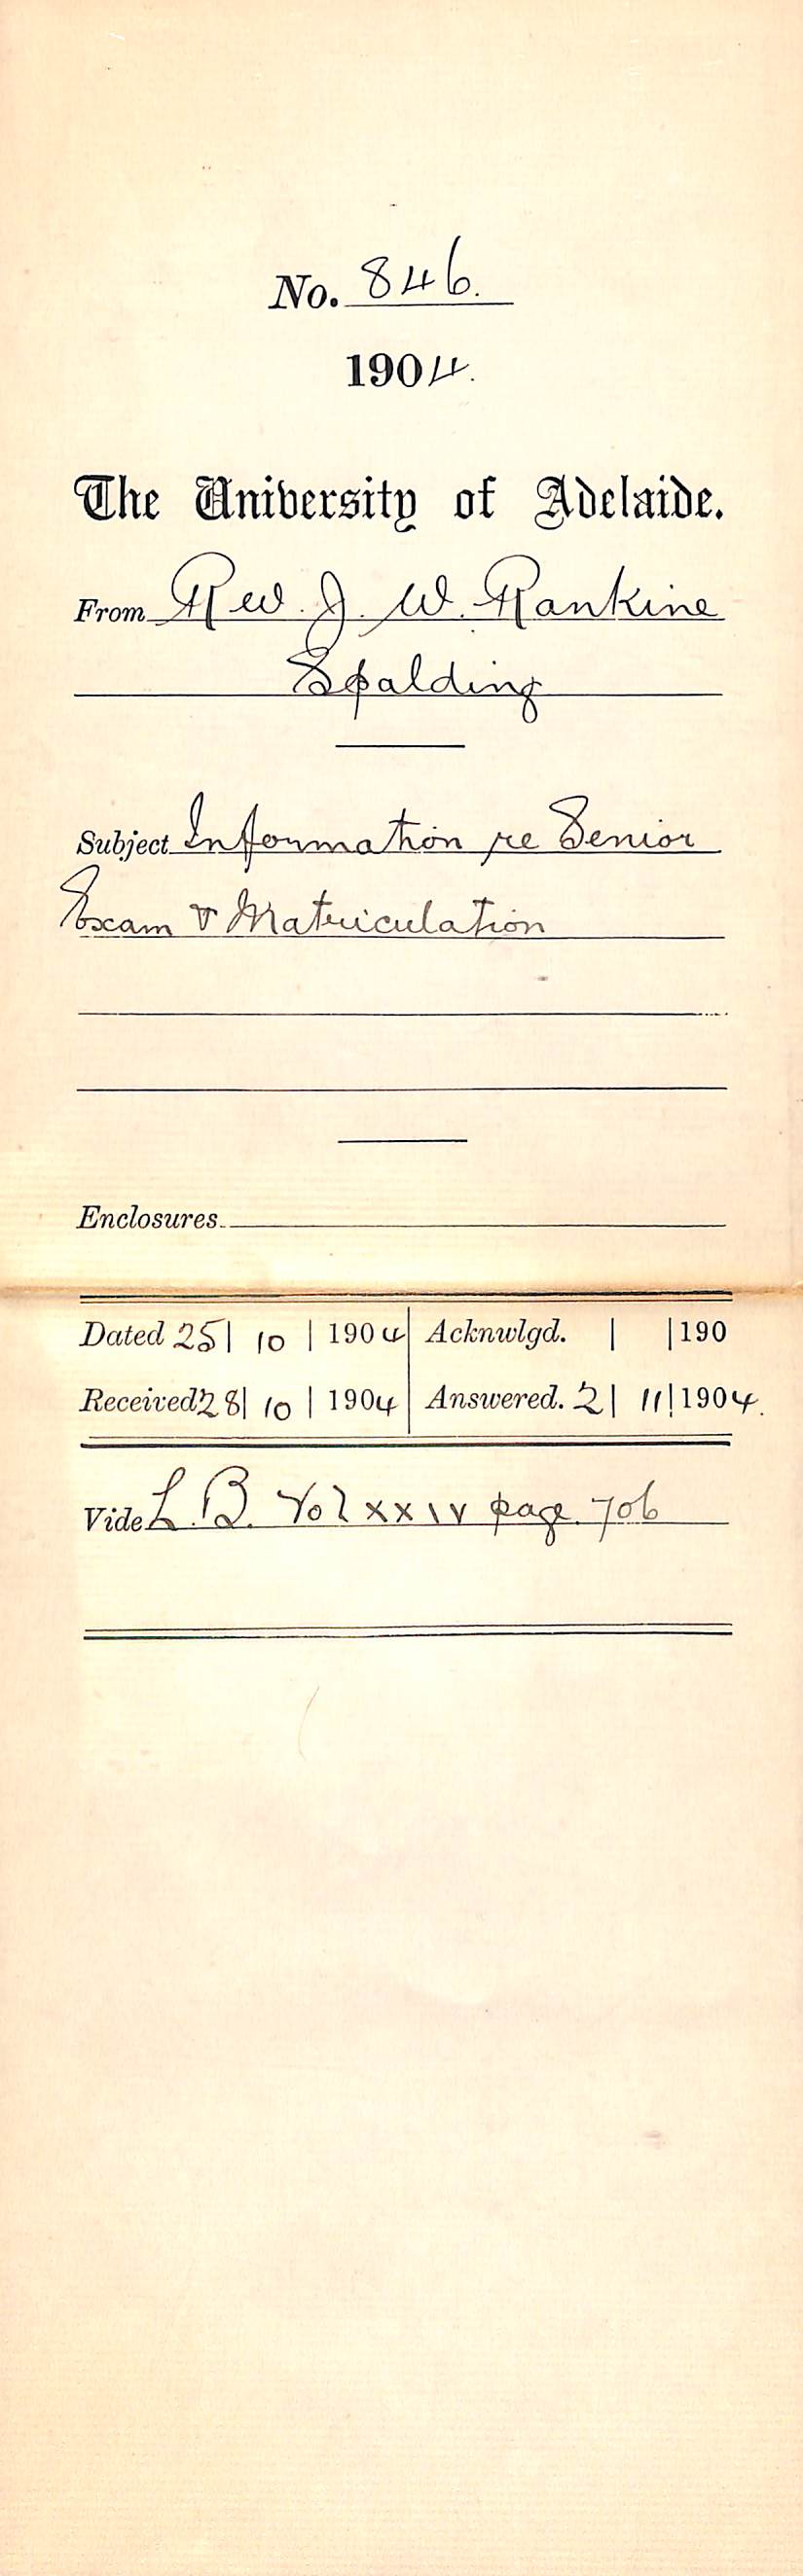 No. 846.
1904.
The University of Adelaide.
From Rev. J. W. Rankine
Spalding
Subject Information re Senior
Exam & Matriculation
Enclosures
Dated 25| 10 | 1904 Acknwlgd. | |190
Received 28| 10 | 1904 Answered. 2| 11|1904.
Vide L. B. Vol xxiv page 706